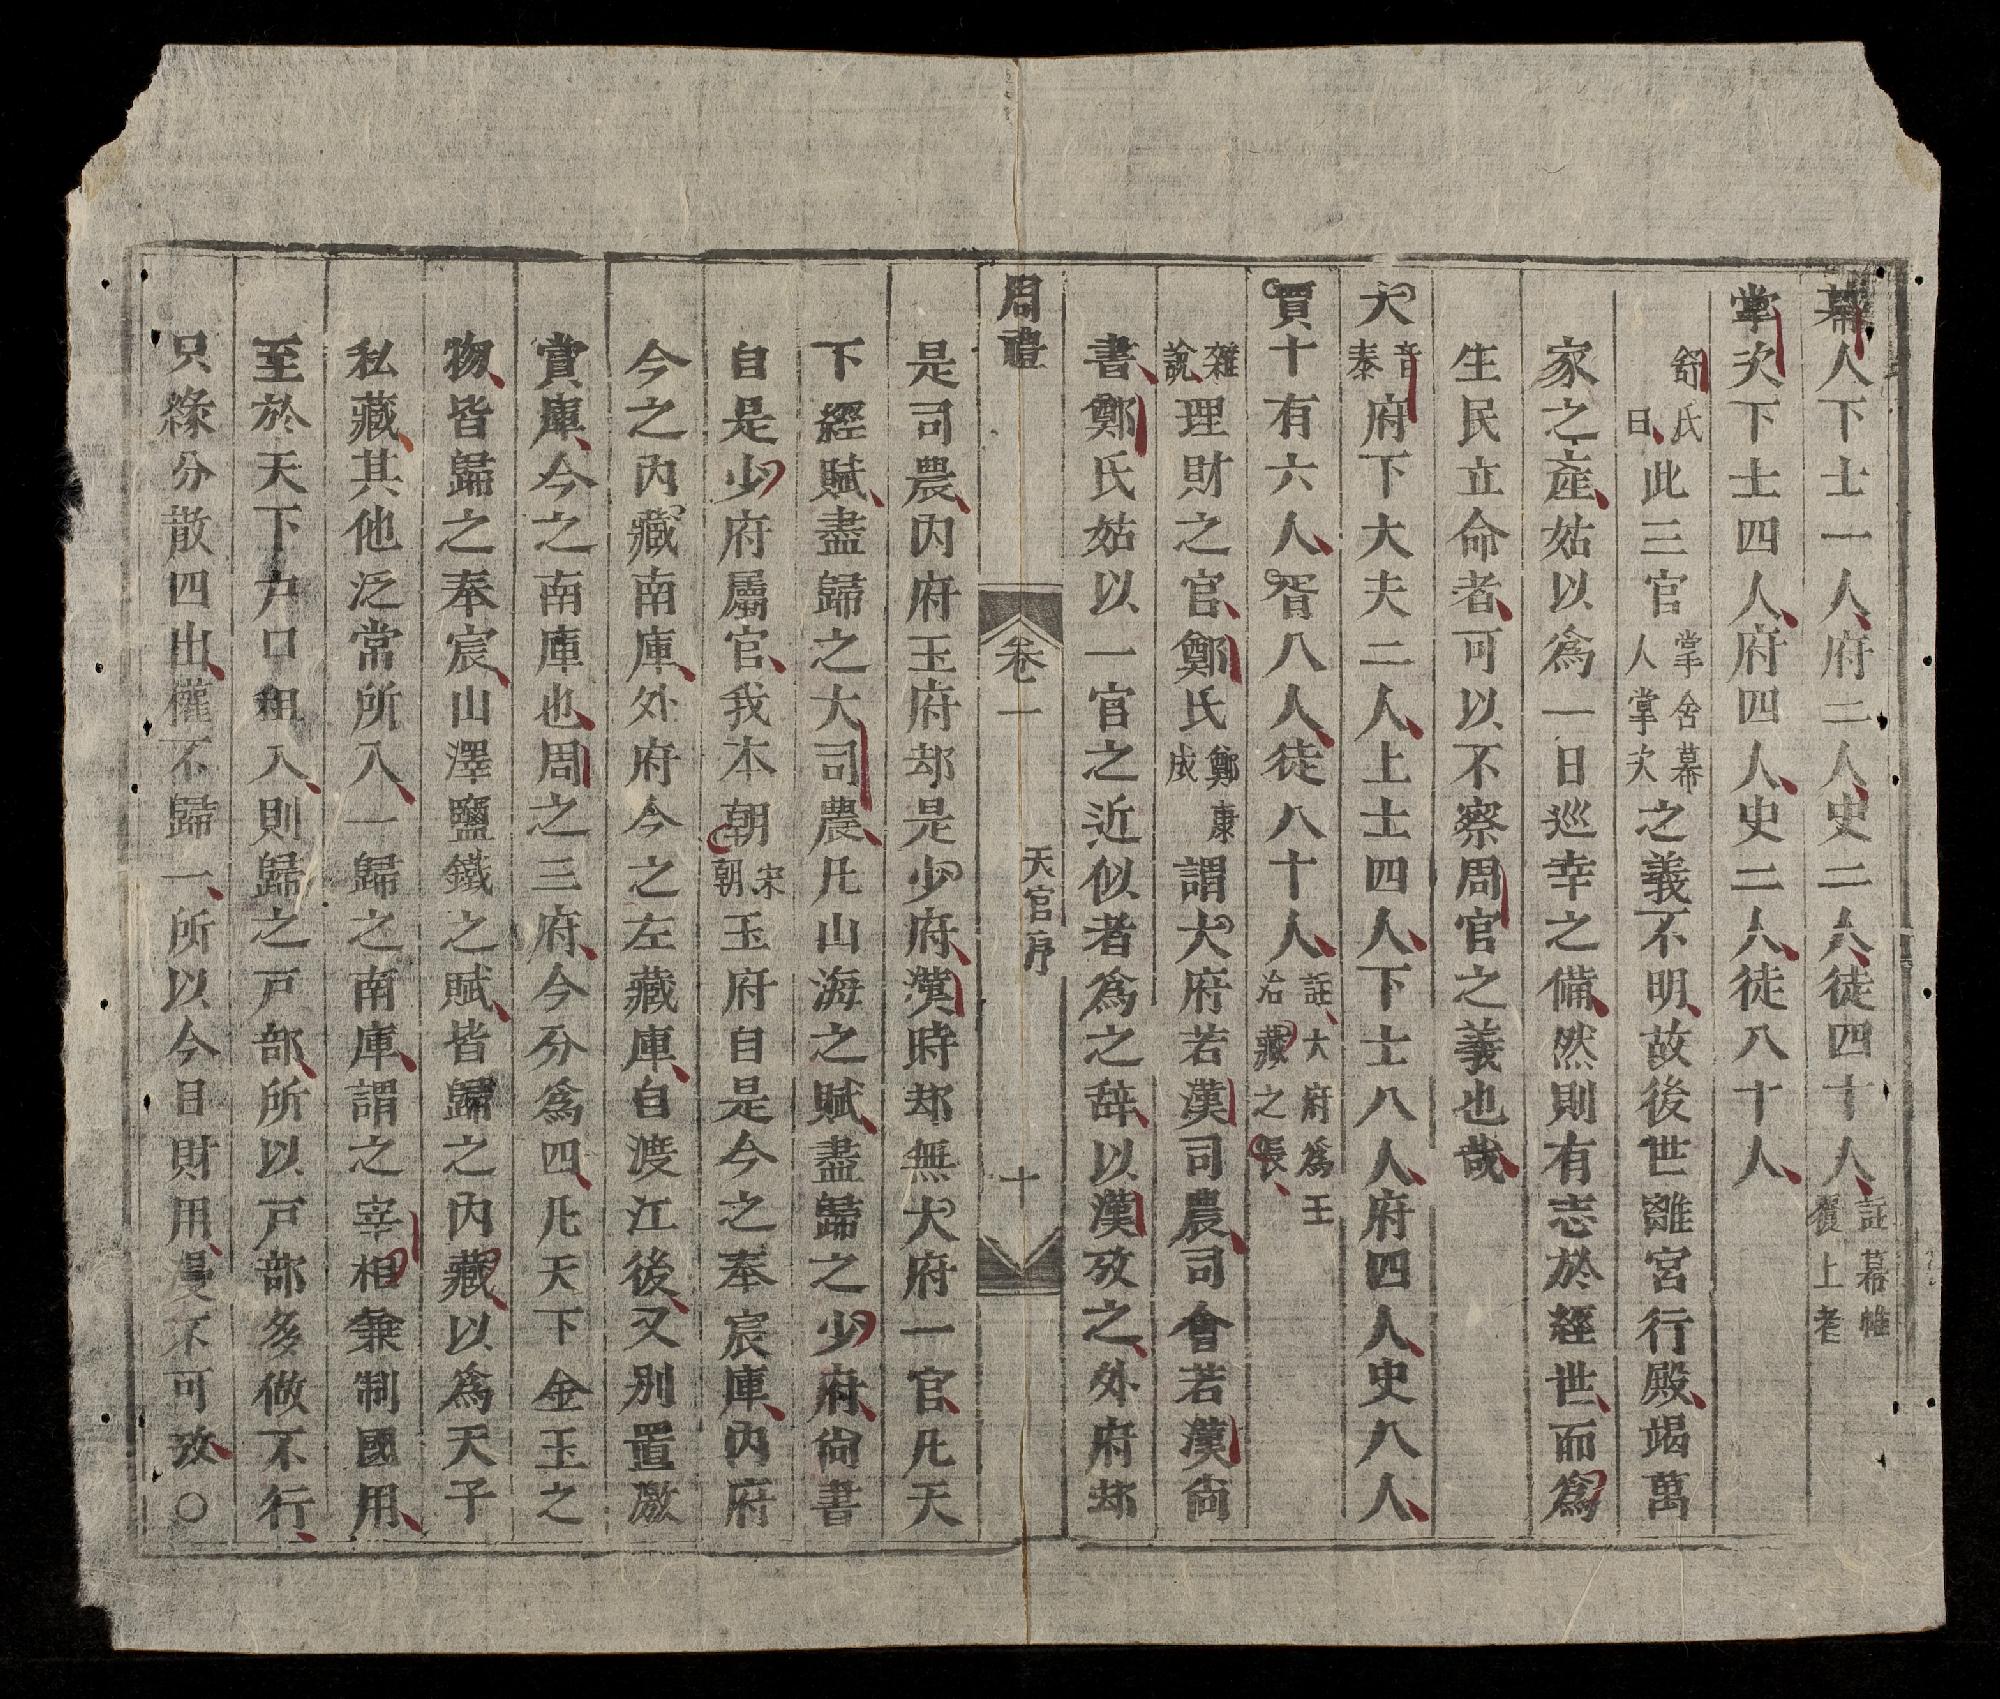 幕人下士一人府二人史二人徒四十人註幕帷覆上者
掌次下士四人府四人史二人徒八十人
舒氏曰此三官掌舍幕人掌次之義不明故後世離宮行殿竭萬
家之產姑以為一日巡幸之備然則有志於經世而為
生民立命者可以不察周官之義也哉
大音泰府下大夫二人上士四人下士八人府四人史八人
賈十有六人胥八人徒八十人註大府為王治藏之長
雜說理財之官鄭氏鄭康成謂大府若漢司農司會若漢尚
書鄭氏姑以一官之近似者為之辞以漢攷之外府却
周禮 卷一 天官序 十
是司農內府玉府却是少府漢時却無大府一官凡天
下經賦盡歸之大司農凡山海之賦盡歸之少府尚書
自是少府屬官我本朝宋朝玉府自是今之奉宸庫內府
今之內藏南庫外府今之左藏庫自渡江後又別置激
賞庫今之南庫也周之三府今分為四凡天下金玉之
物皆歸之奉宸山澤鹽鐵之賦皆歸之內藏以為天子
私藏其他泛常所入一歸之南庫謂之宰相兼制國用
至於天下户口租入則歸之戸部所以戸部多做不行
只緣分散四出權不歸一所以今日財用漫不可攷○